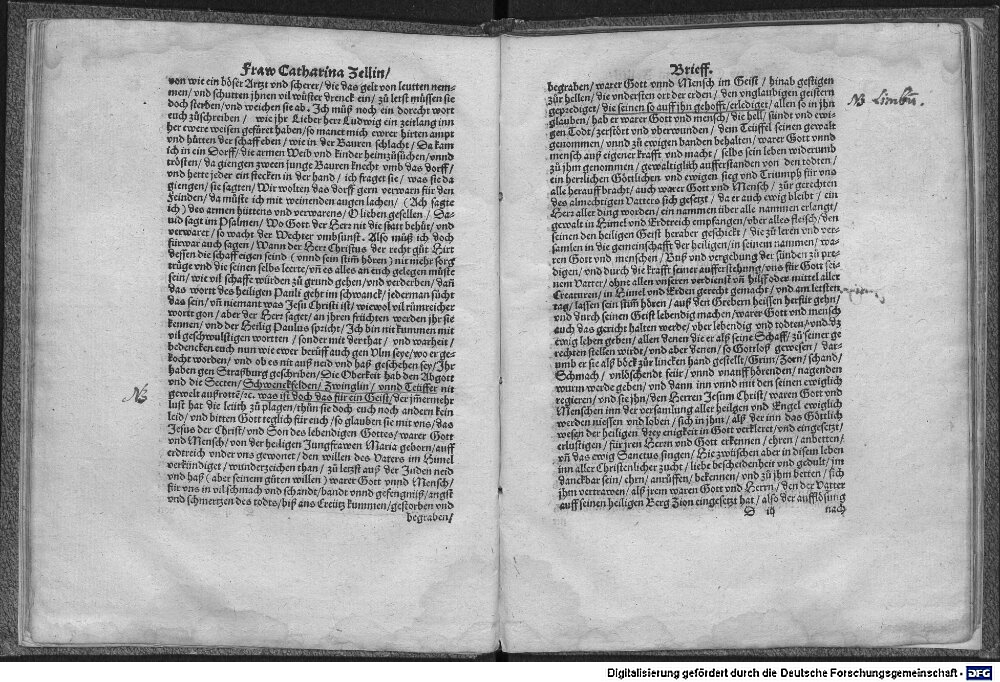 Fraw Catharina Zellin/
von wie ein böser Artzt vnd scherer/ die das gelt von leutten nem-
men/ vnd schutten jhnen vil wüster drenck ein/ zů letst müssen sie
doch sterben/ vnd weichen sie ab. Ich můß noch ein dorecht wort
euch zůschreiben/ wie jhr Lieber herr Ludwig ein zeitlang inn
her ewere weisen gefüret haben/ so manet mich ewrer hirten ampt
vnd hütten der schaff eben/ wie in der Bauren schlacht/ Da kam
ich in ein Dorff/ die armen Weib vnd kinder heimzůsůchen/ vnnd
trösten/ da giengen zween junge Bauren knecht vmb das dorff/
vnd hette jeder ein stecken in der hand/ ich fraget sie/ was sie da
giengen/ sie sagten/ Wir wolten das dorff gern verwarn für den
Feinden/ da můste ich mit weinenden augen lachen/ (Ach sagte
ich) des armen hüttens vnd verwarens/ O lieben gesellen/ Da-
uid sagt im Psalmen/ Wo Gott der Herz nit die statt behüt/ vnd
verwaret/ so wacht der Wechter vmbsunst. Also můß ich doch
fürwar auch sagen/ Wann der Herr Christus der recht gůt Hirt
dessen die schaff eigen seind (vnnd sein stim̃ hören) nit mehr sorg
trüge vnd die seinen selbs leerte/ vñ es alles an euch gelegen müste
sein/ wie vil schaffe würden zů grund gehen/ vnd verderben/ dañ
das wort des heiligen Pauli geht im schwanck/ jederman sůcht
das sein/ vñ niemant was Jesu Christi ist/ wiewol vil rümreicher
wort gon/ aber der Herr saget/ an jhren früchten werden jhr sie
kennen/ vnd der Heilig Paulus spricht/ Ich bin nit kummen mit
vil geschwulstigen wortten/ sonder mit der that/ vnd warheit/
bedencken euch nun wie ewer berüff auch gen Vlm seye/ wo er ge-
kocht worden/ vnd ob es nit auß neid vnd haß geschehen sey/ Ihr
haben gen Straßburg geschriben/ Die Oberkeit hab den Abgott
vnd die Secten/ Schwenckfelden/ Zwinglin/ vnnd Teüffer nit
NB gewelt außrotte/ ꝛc. was ist doch das für ein Geist/ der jm̃ermehr
lust hat die leüth zů plagen/ thůn sie doch euch noch andern kein
leid/ vnd bitten Gott teglich für euch/ so glauben sie mit vns/ das
Jesus der Christ/ vnd Son des lebendigen Gottes/ warer Gott
vnd Mensch/ von der heiligen Jungfrawen Maria geborn/ auff
erdtreich vnder vns gewonet/ den willen des Vaters im Himel
verkündiget/ wunderzeichen than/ zů letzst auß der Juden neid
vnd haß (aber seinem gůten willen) warer Gott vnnd Mensch/
für vns in vil schmach vnd schandt/ bandt vnnd gefengniß/ angst
vnd schmertzen des todts/ biß ans Creütz kummen/ gestorben vnd
begraben/
Brieff.
begraben/ warer Gott vnnd Mensch im Geist/ hinab gestigen
zůr hellen/ die vndersten ort der erden/ den vnglaubigen geistern
geprediget/ die seinen so auff jhn gehofft/ erlediget/ allen so in jhn NB Limbũ.
glauben/ hab er warer Gott vnd mensch/ die hell/ sündt vnd ewi-
gen Todt/ zerstört vnd vberwunden/ dem Teüffel seinen gewalt
genommen/ vnnd zů ewigen banden behalten/ warer Gott vnnd
mensch auß eigener krafft vnd macht/ selbs sein leben widerumb
zů jhm genommen/ gewaltiglich aufferstanden von den todten/
ein herrlichen Göttlichen vnd ewigen sieg vnd Triumph für vns
alle herauff bracht/ auch warer Gott vnd Mensch/ zůr gerechten
des almechtigen Vatters sich gesetzt/ da er auch ewig bleibt/ ein
Herz aller ding worden/ ein nammen über alle nammen erlangt/
gewalt in Himel vnd Erdtreich empfangen/ vber alles fleisch/ den
seinen den heiligen Geist heraber geschickt/ die zů leren vnd ver-
samlen in die gemeinschafft der heiligen/ in seinem nammen/ wa-
ren Gott vnd menschen/ Bůß vnd vergebung der sünden zů pre-
digen/ vnd durch die krafft seiner aufferstehung/ vns für Gott sei-
nem Vatter/ ohne allen vnseren verdienst vñ hilff oder mittel aller
Creaturen/ in Himel vnd Erden gerecht gemacht/ vnd am letsten
tag/ lassen sein stim̃ hören/ auß den Grebern heissen herfür gehn/
vnd durch seinen Geist lebendig machen/ warer Gott vnd mensch
auch das gericht halten werde/ vber lebendig vnd todten/ vnd dz
ewig leben geben/ allen denen die er alß seine Schaff/ zů seiner ge
rechten stellen wirdt/ vnd aber denen/ so Gottloß gewesen/ dar-
umb er sie alß böck zůr lincken hand gestellt/ Grim/ Zorn/ schand/
Schmach/ vnlöschendt feür/ vnnd vnauffhörenden/ nagenden
wurm werde geben/ vnd dann inn vnnd mit den seinen ewiglich
regieren/ vnd sie jhn/ den Herren Jesum Christ/ waren Gott vnd
Menschen inn der versamlung aller heilgen vnd Engel ewiglich
werden niessen vnd loben/ sich in jhm/ alß der inn das Göttlich
wesen der heiligen drey einigkeit in Gott verkleret/ vnd eingesetzt/
erlustigen/ für jren Herrn vnd Gott erkennen/ ehren/ anbetten/
vñ das ewig Sanctus singen/ Hie zwüschen aber in disem leben
inn aller Christenlicher zucht/ liebe bescheidenheit vnd gedult/ jm
danckbar sein/ ehrn/ anrüffen/ bekennen/ vnd zů jhm betten/ sich
jhm vertrawen/ alß jrem waren Gott vnd Herrn/ den der Vatter
auff seinen heiligen Berg Zion eingesetzt hat/ also der aufflösung
D iij nach
Digitalisierung gefördert durch die Deutsche Forschungsgemeinschaft - DFG